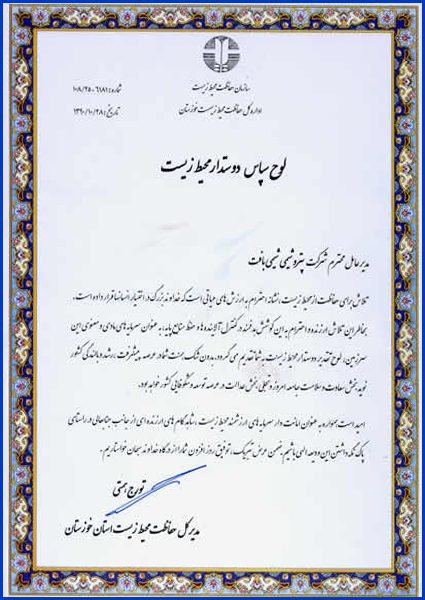 سازمان حفاظت محیط زیست
اداره کل حفاظت محیط زیست خوزستان
شماره: ۶۱۸۱-۱۰۸/۲۵
تاریخ: ۱۳۹۰/۱۰/۲۸
لوح سپاس دوستدار محیط زیست
مدیر عامل محترم شرکت پتروشیمی شیمی بافت
تلاش برای حفاظت از محیط زیست، نشانه احترام به ارزش های حیاتی است که خداوند بزرگ در اختیار انسانها قرار داده است.
بخاطر این تلاش ارزنده و احترام به این کوشش هدفمند در کنترل آلاینده ها و حفظ منابع پایه، به عنوان سرمایه های مادی و معنوی این
سرزمین، لوح تقدیر دوستدار محیط زیست به شما تقدیم می گردد. بدون شک همت شما در عرصه پیشرفت، رشد و بالندگی کشور
نوید بخش سعادت و سلامت جامعه امروز و تجلی بخش عدالت در عرصه توسعه و شکوفایی کشور خواهد بود.
امید است همواره به عنوان امانت دار سرمایه های ارزشمند محیط زیست، شاهد گام های ارزنده ای از جانب جنابعالی در راستای
پاک نگه داشتن این ودیعه الهی باشیم. ضمن عرض تبریک، توفیق روز افزون شما را از درگاه خداوند سبحان خواستاریم.
تورج همتی
مدیر کل حفاظت محیط زیست استان خوزستان